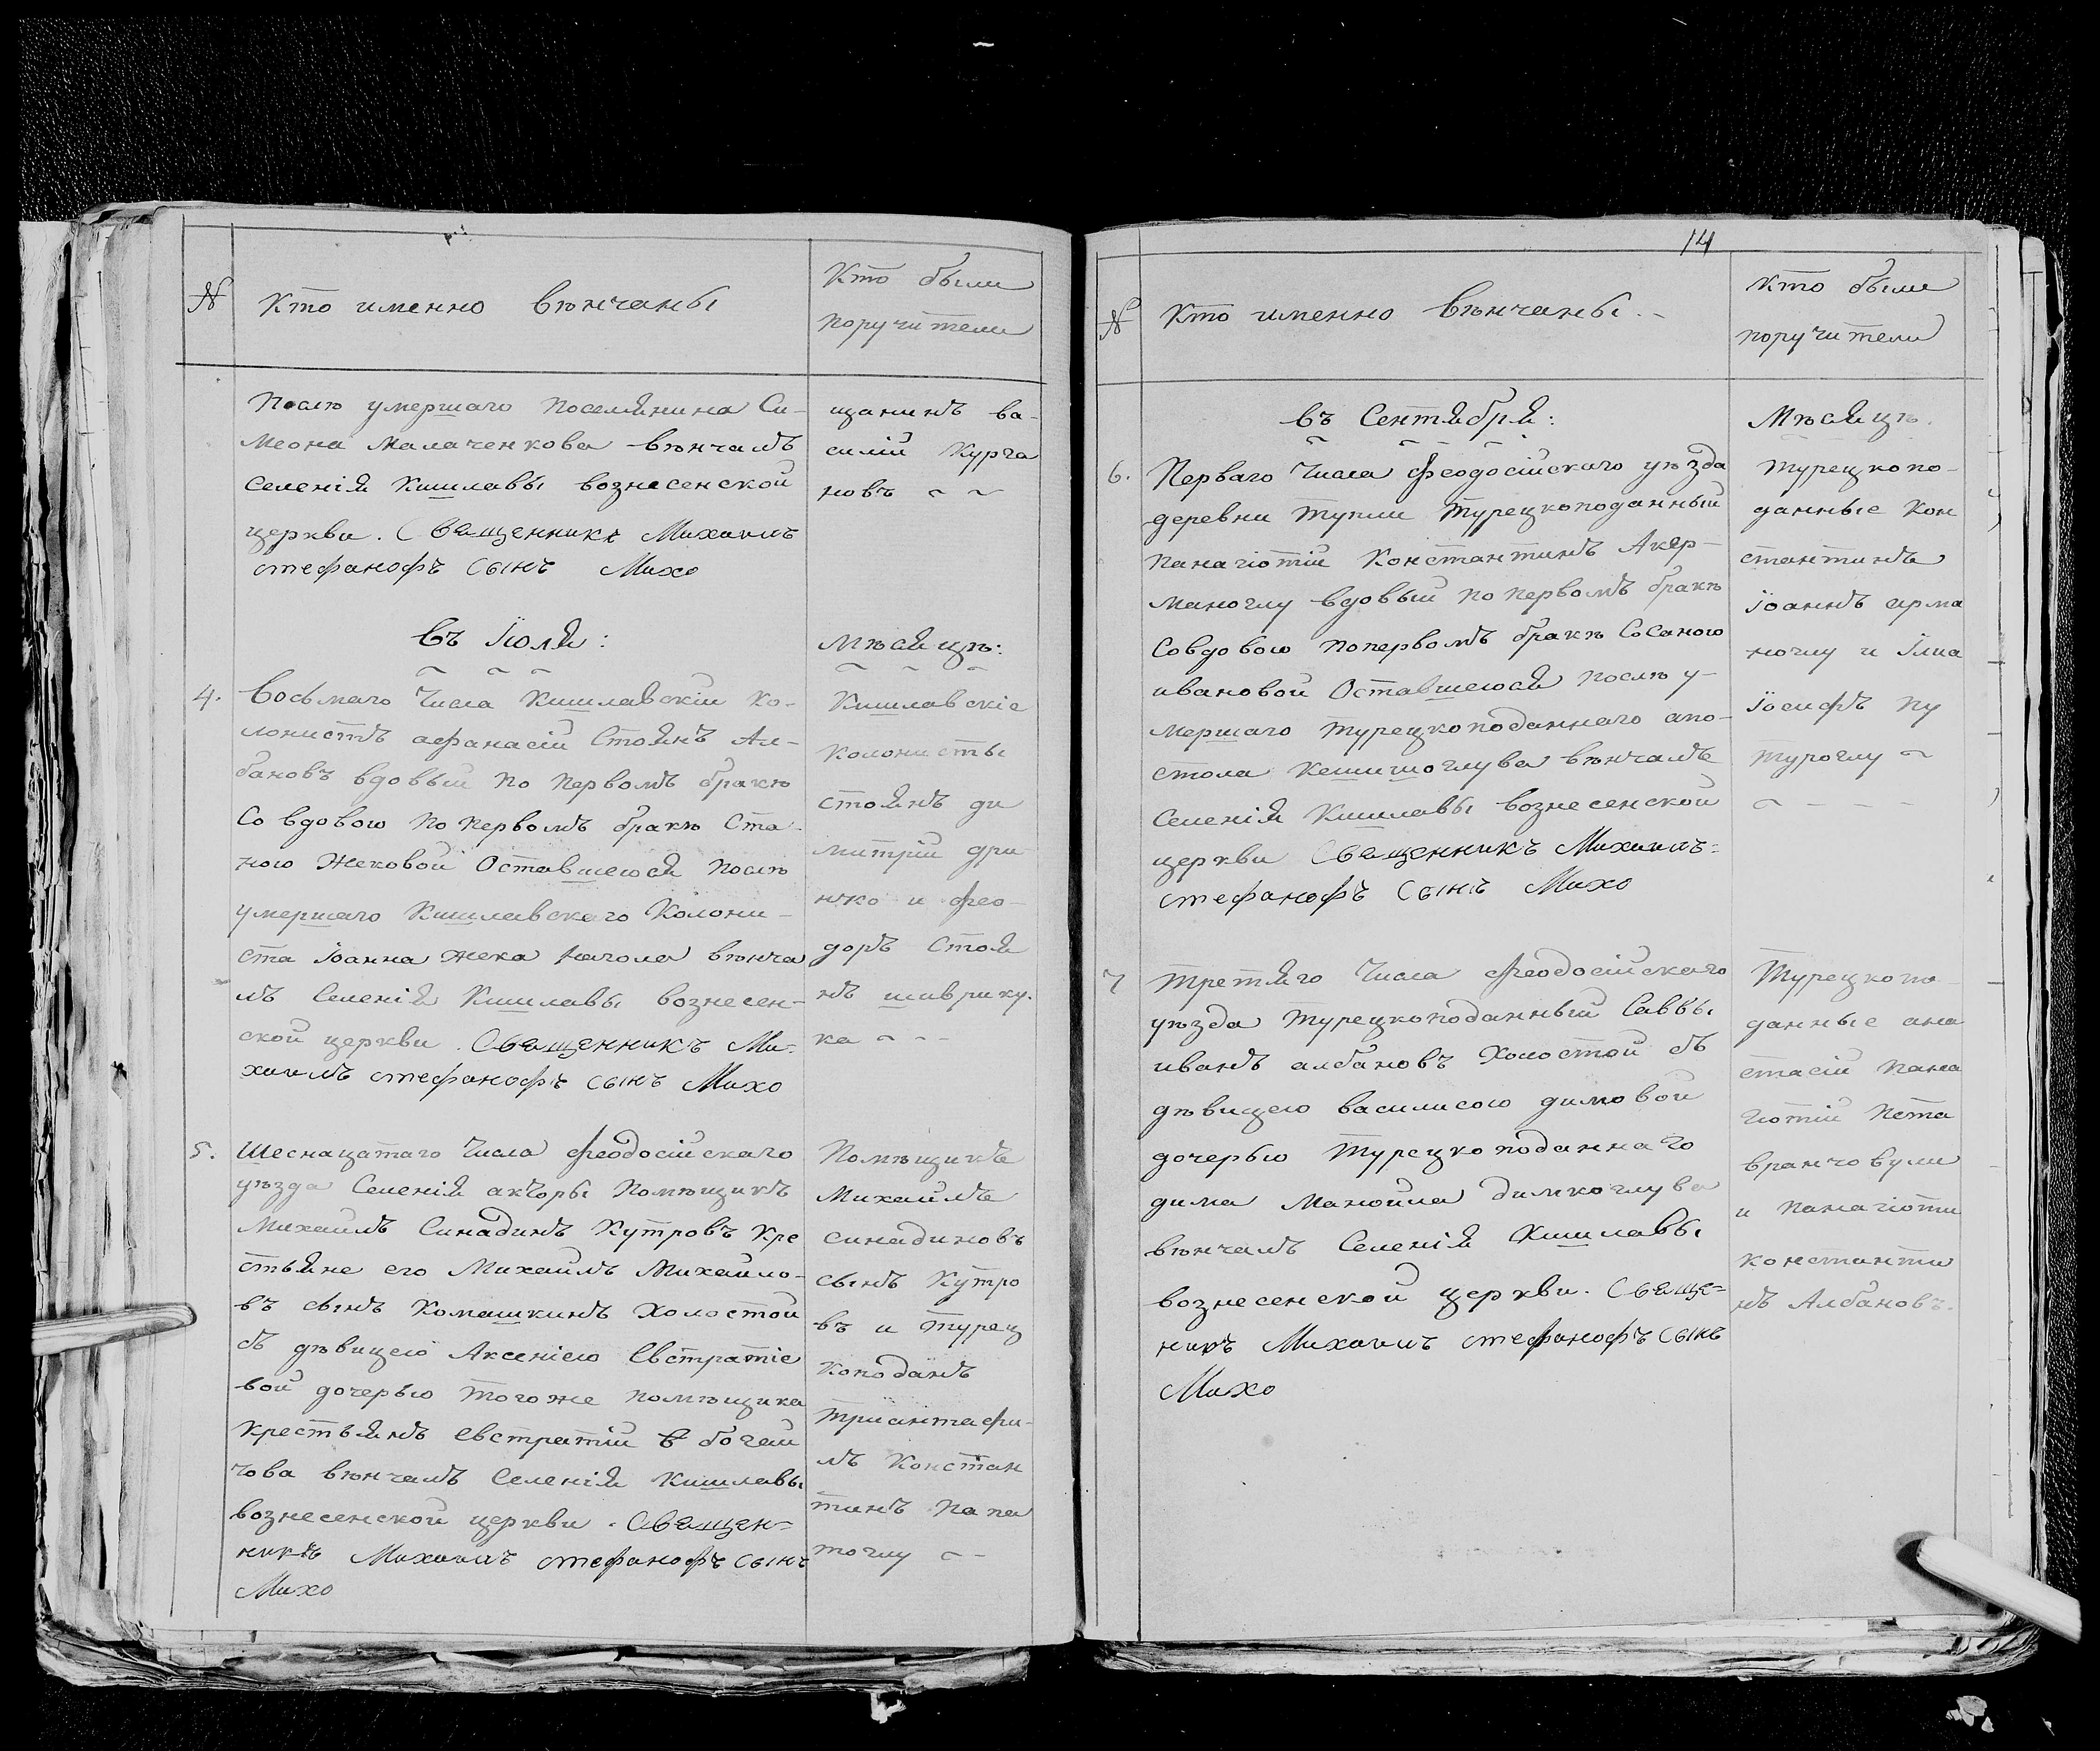 №
Кто именно вѣнчаны
Кто были
поручители
Послѣ умершаго поселянина Си-
меона Малаченкова вѣнчалъ
селенія Кишлавы вознесенской
церкви. Священникъ Михаилъ
стефанофъ сынъ Михо
щанинъ ва-
силій Курга
новъ
въ Іюля:
Мѣсяцѣ:
4.
Восьмаго числа Кишлавскій ко-
лонистъ афанасій Стоянъ Ал-
бановъ вдовый по первомъ бракѣ
Со вдовою по первомъ бракѣ Ста-
ною Жековой Оставшеюся послѣ
умершаго Кишлавскаго Колони-
ста Іоанна Жека вѣнча
лъ Селенія Кишлавы вознесен-
ской церкви. Священникъ Ми-
хаилъ стефанофъ сынъ Михо
Кишлавскіе
колонисты
стоянъ ди
митрій дри
нко и фео-
доръ Стоя
нъ шаврику.
ка
5.
Шеснацатаго числа феодосійскаго
уѣзда Селенія акчоры помѣщикъ
Михаилъ Синадинъ Кутровъ Кре
стьяне его Михаилъ Михаило-
въ сынъ Комашкинъ холостой
съ дѣвицею Аксеніею Евстратіе
вой дочерью тогоже помѣщика
крестьянъ евстратій
чова вѣнчалъ Селенія Кишлавы
вознесенской церкви. Священ-
никъ Михаилъ стефанофъ сынъ
Михо
Помѣщикъ
Михаилъ
синадиновъ
сынъ Кутро
въ и турец
коподанъ
тріантафи-
лъ Констан
тинъ папа
тоглу
14
№
Кто именно вѣнчаны.
Кто были
поручители
въ Сентября:
Мѣсяцѣ.
6.
Перваго числа феодосійскаго уѣзда
деревни тупли турецкоподанный
панагіотій Константинъ Акер-
маноглу вдовый по первомъ бракѣ
Совдовою попервомъ бракѣ Сосаною
ивановой Оставшеюся послѣ у-
мершаго турецкоподаннаго апо-
стола Кешишоглува вѣнчалъ
Селенія Кишлавы вознесенской
церкви Священникъ Михаилъ
стефанофъ сынъ Михо
турецкопо-
данные Кон
стантинъ
Іоаннъ арма
ноглу и Ілиа
Іосифъ пу
туроглу
7
третяго числа феодосійскаго
уѣзда турецкоподанный Саввы
иванъ албановъ холостой съ
дѣвицею василисою димовой
дочерью турецкоподаннаго
дима Манойла димкоглува
вѣнчалъ Селенія Кишлавы
вознесенской церкви. Свяще-
никъ Михаилъ стефанофъ сынъ
Михо
Турецкопо-
данные ана
стасій пана
гіотій пета
вранчовули
и панагіоти
константи
нъ Албановъ.